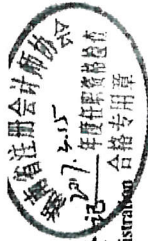 南省注册会计师协会
2017.2.15
年度任职资格检查
合格专用章
记
istration